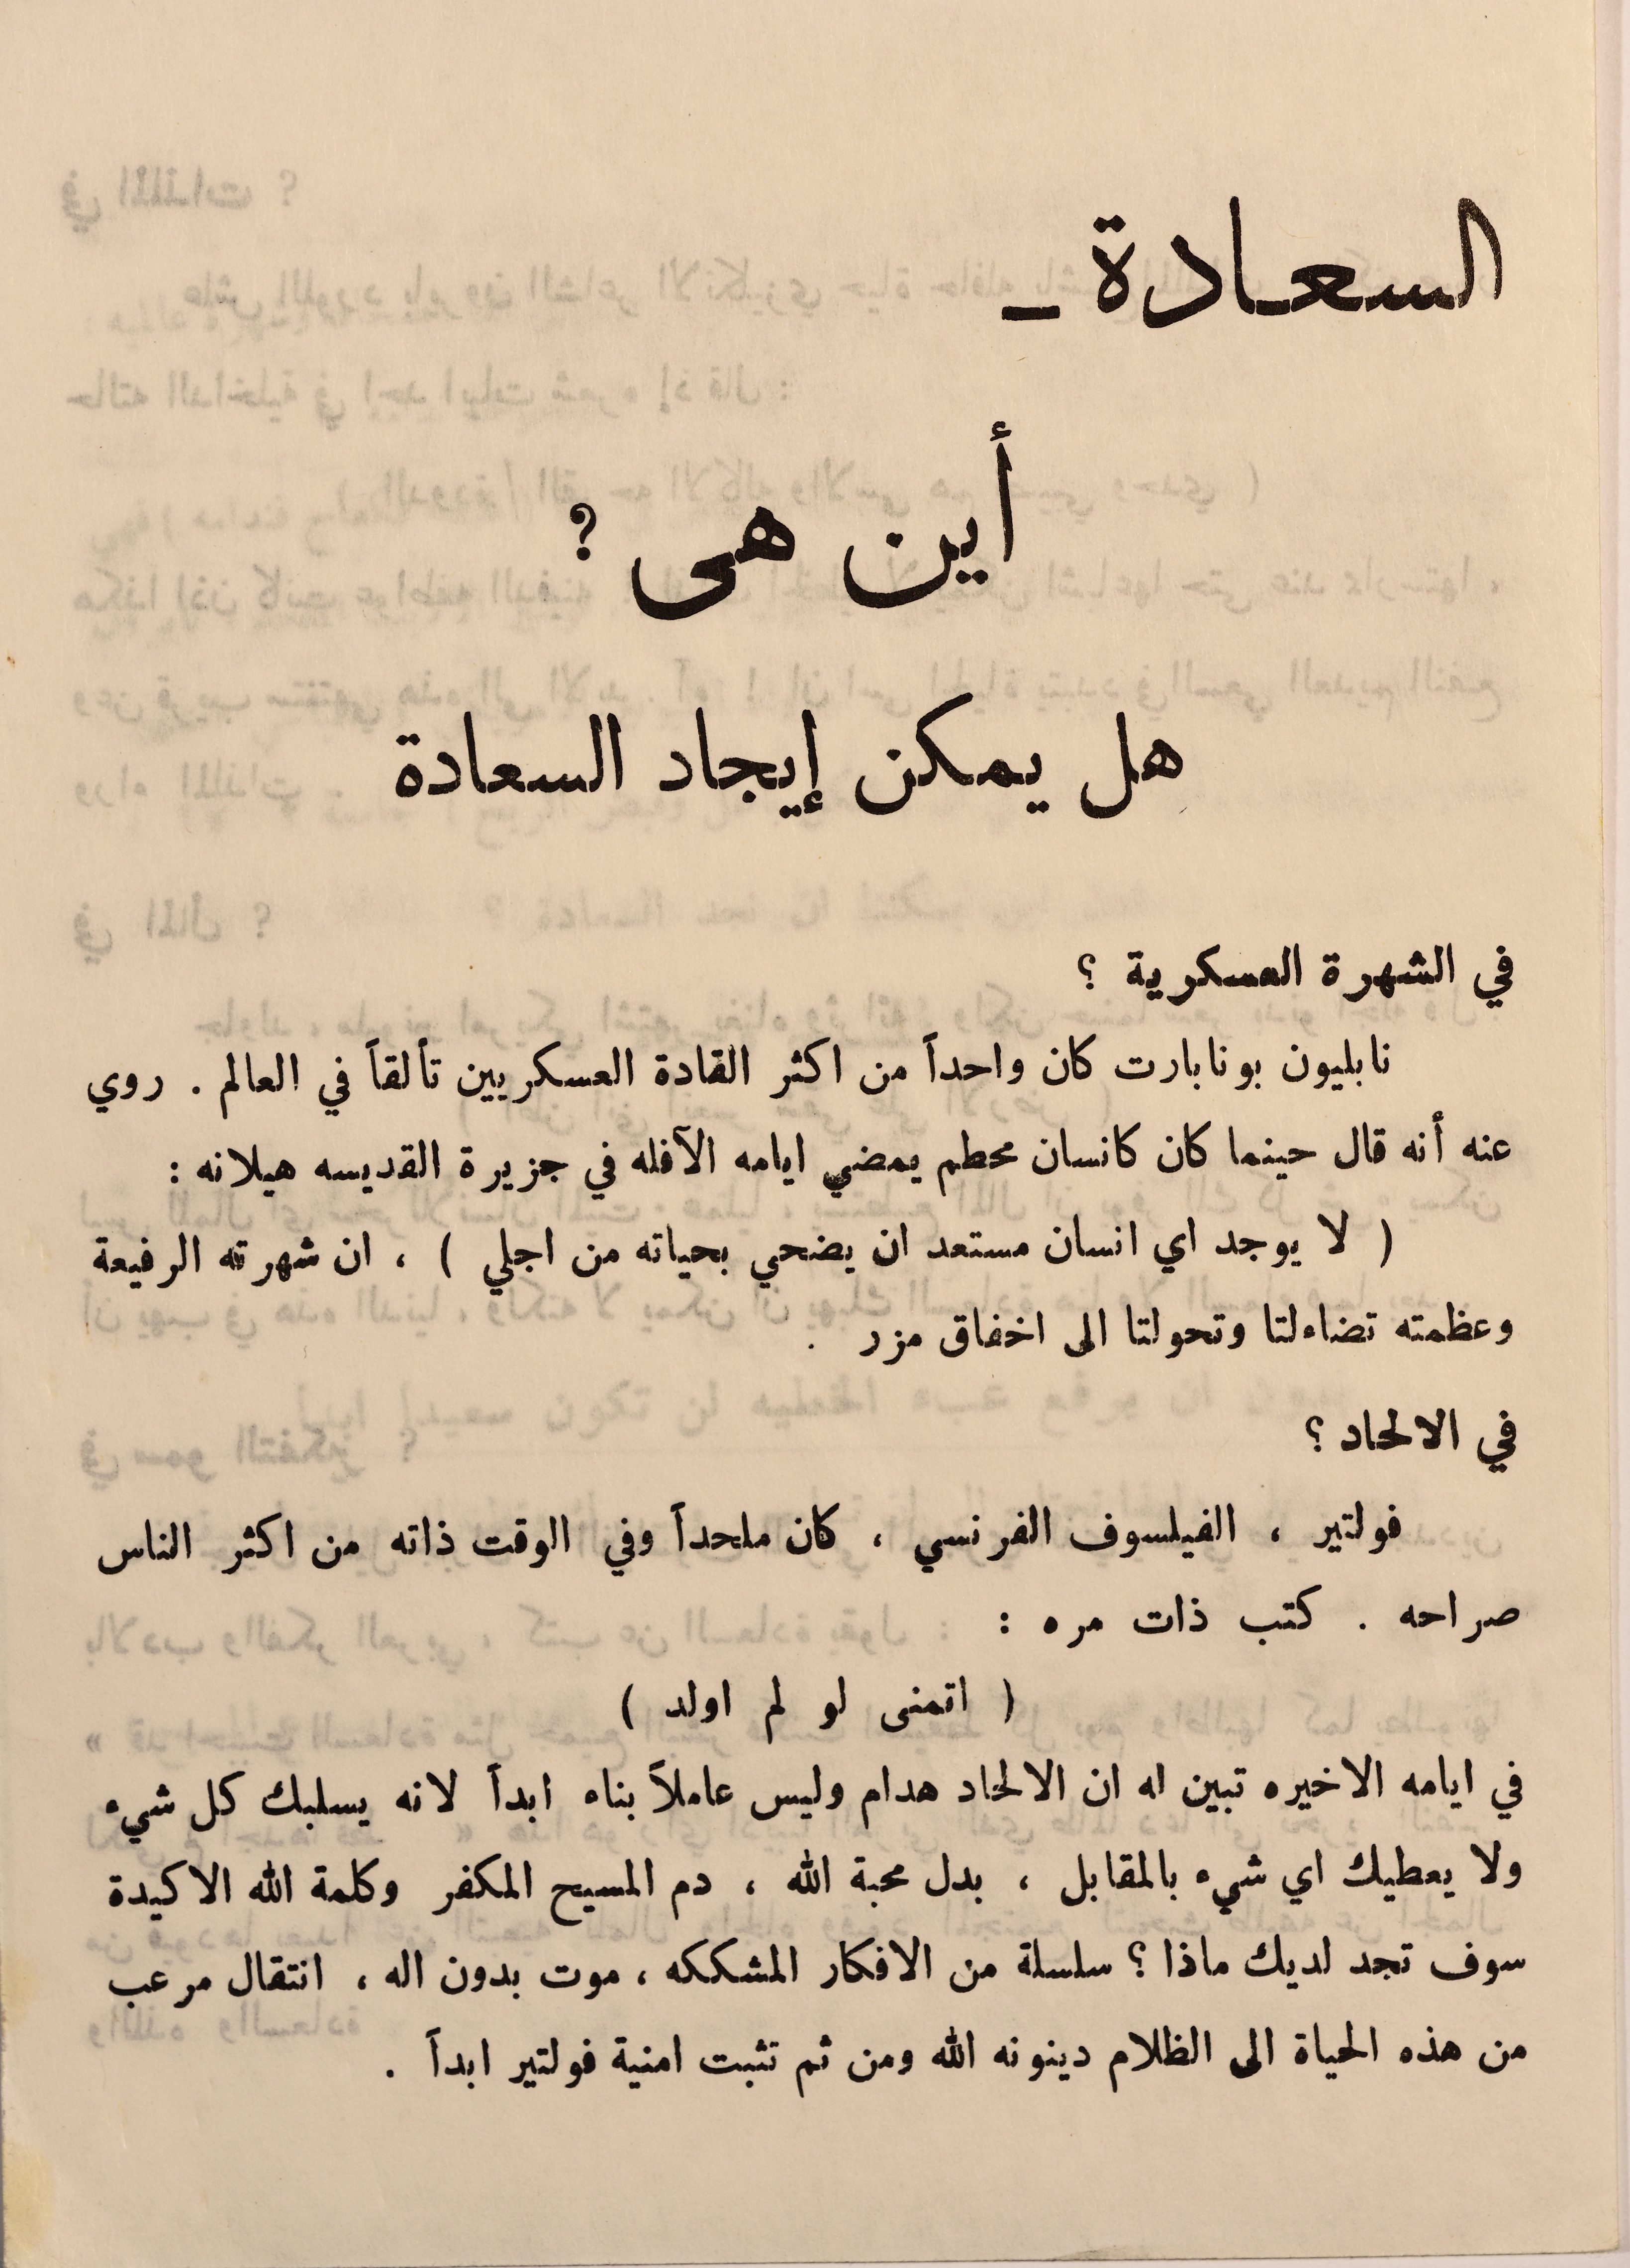 السعادة -
أين هى ؟
هل يمكن إيجاد السعادة
في الشهرة العسكرية ؟
نابليون بونابارت كان واحداً من اكثر القادة العسكريين تألقاً في العالم . روي
عنه أنه قال حينما كان كانسان محطم يمضي ايامه الآفله في جزيرة القديسه هيلانه :
( لا يوجد اي انسان مستعد ان يضحي بحياته من اجلي ) ، ان شهرته الرفيعة
وعظمته تضاءلتا وتحولتا الى اخفاق مزر .
في الالحاد ؟
فولتير ، الفيلسوف الفرنسي ، كان ملحداً وفي الوقت ذاته من اكثر الناس
صراحه . كتب ذات مره :
( اتمنى لو لم اولد )
في ايامه الاخيره تبين له ان الالحاد هدام وليس عاملاً بناء ابداً لانه يسلبك كل شيء
ولا يعطيك اي شيء بالمقابل ، بدل محبة الله ، دم المسيح المكفر وكلمة الله الاكيدة
سوف تجد لديك ماذا ؟ سلسلة من الافكار المشككه ، موت بدون اله ، انتقال مرعب
من هذه الحياة الى الظلام دينونه الله ومن ثم تثبت امنية فولتير ابداً .